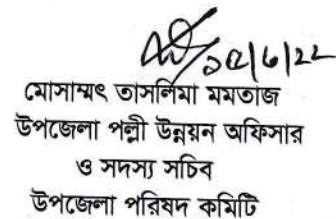 ১৫/৬/২২
মোসাম্মৎ তাসলিমা মমতাজ
উপজেলা পল্লী উন্নয়ন অফিসার
ও সদস্য সচিব
উপজেলা পরিষদ কমিটি